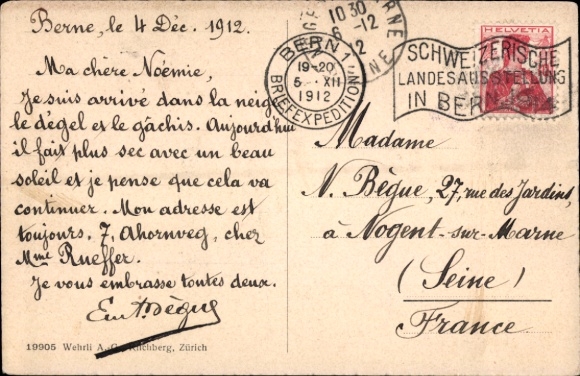 Berne, le 4 Déc. 1912.
Ma chère Noémie,
Je suis arrivé dans la neige
le dégel et le gâchis. Aujourd'hui
il fait plus sec avec un beau
soleil et je pense que cela va
continuer. Mon adresse est
toujours, 7, Ahornweg, chez
Mme Rueffer.
Je vous embrasse toutes deux.
Bègue
19905 Wehrli A. G., Kilchberg, Zürich
1030
6-12
12
BERN 1
19-20
5 XII
1912
BRIEFEXPEDITION
HELVETIA
SCHWEIZERISCHE
LANDESAUSSTELLUNG
IN BERN 1914
Madame
N. Bègue, 27, rue des Jardins,
à Nogent-sur-Marne
(Seine)
France